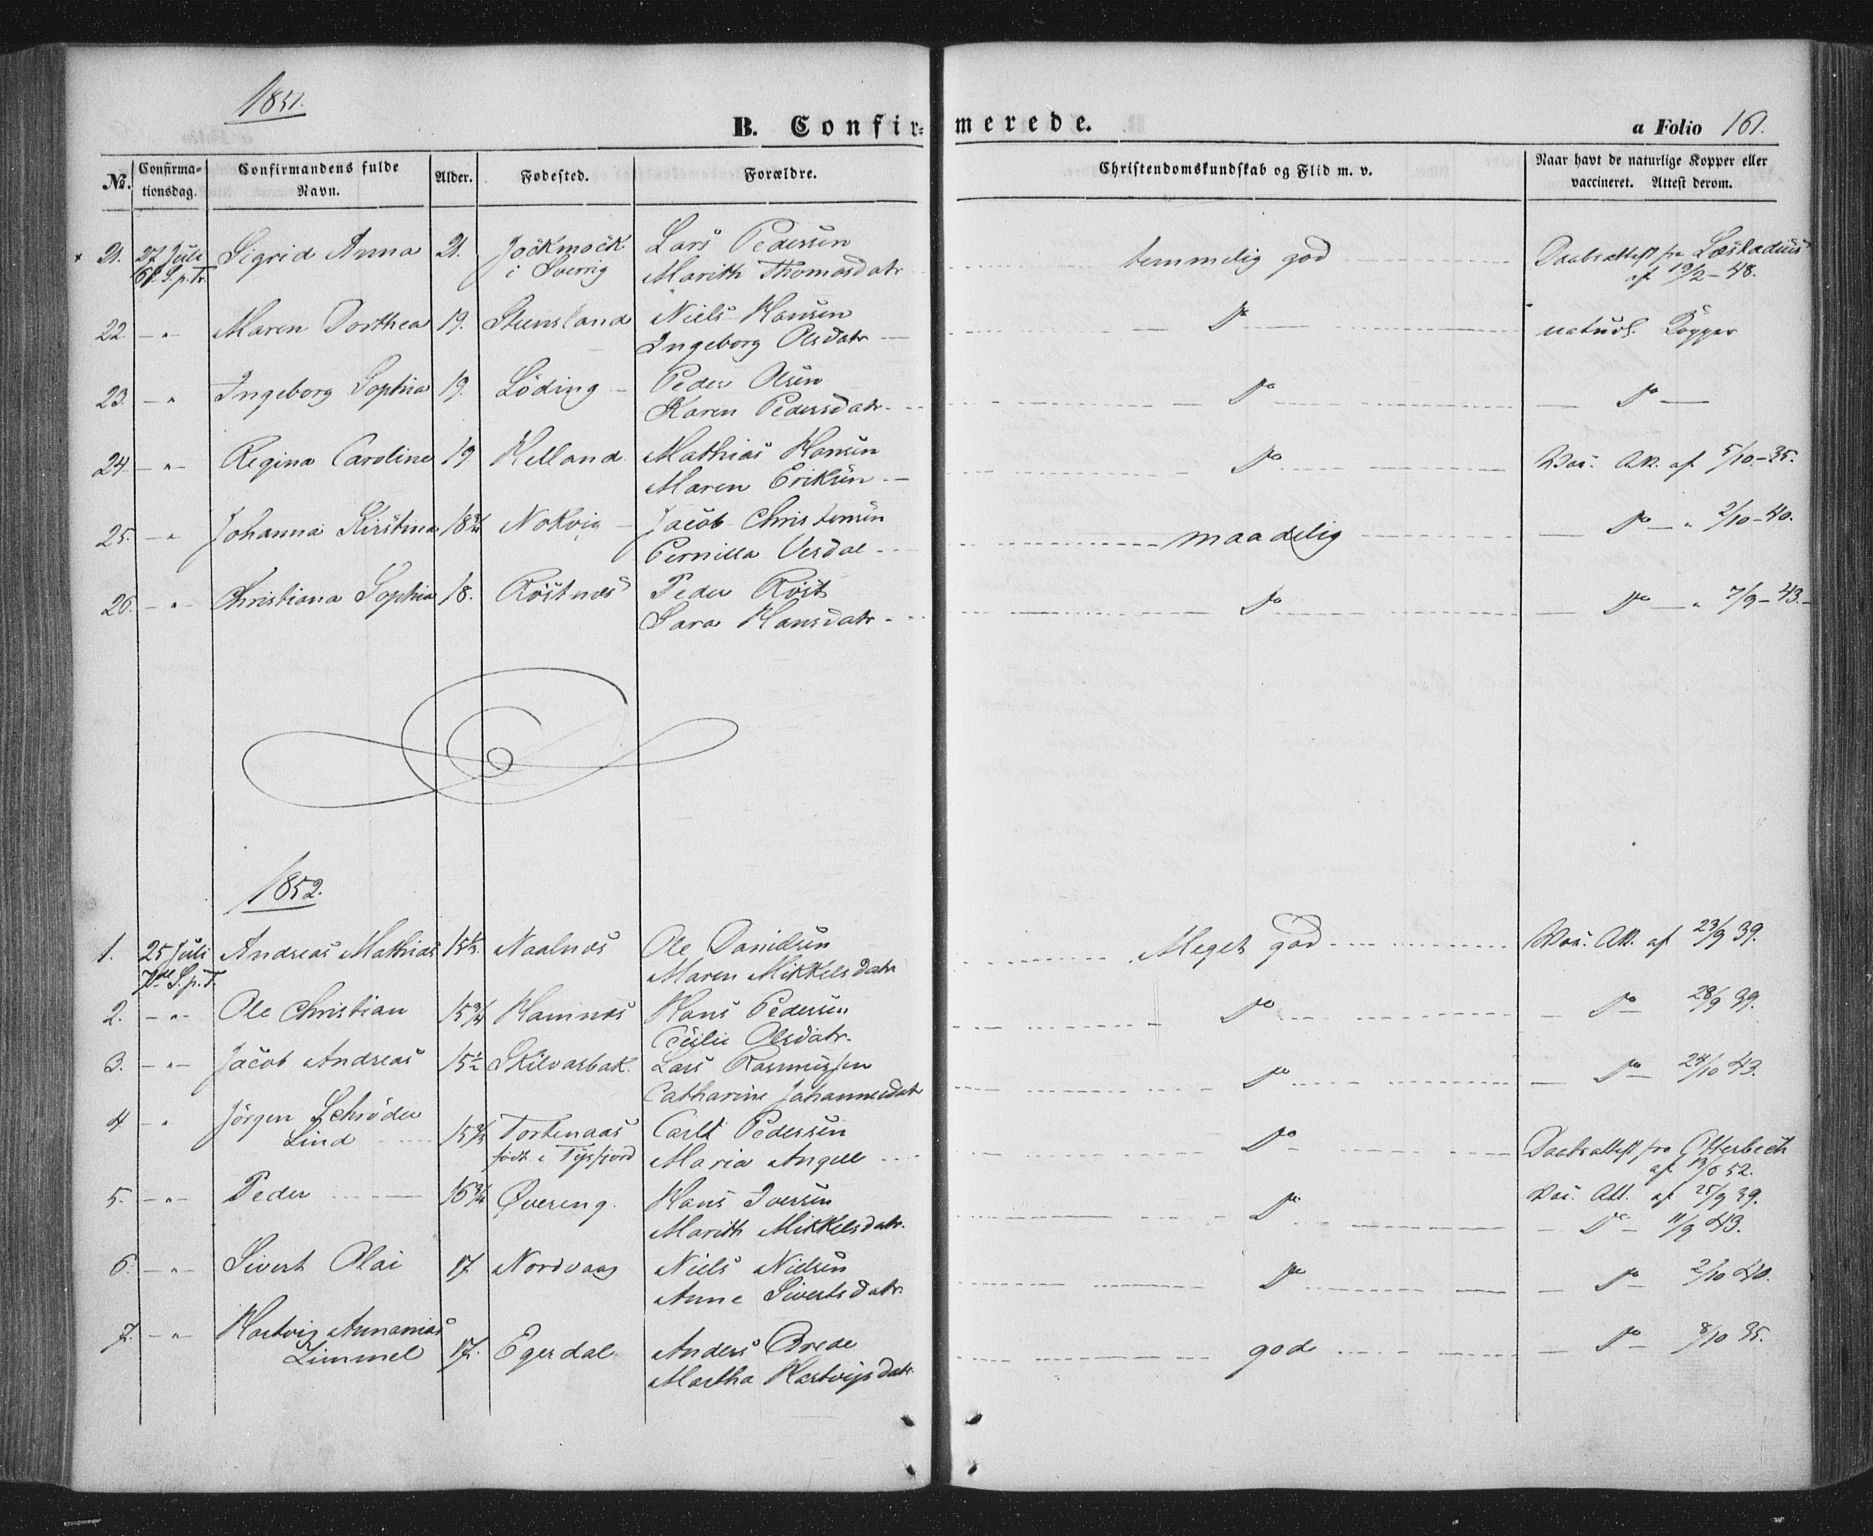 1851.
B. Confirmerede.
a Folio 161.
No. Confirmationsdag. Confirmandens fulde Navn. Alder. Fødested. Forældre. Christendomskundskab og Flid m. v. Naar havt de naturlige Kopper eller vaccineret. Attest derom.
21. 27 Juli Sigrid Anna 21. Jockmock Lars Pedersen temmelig god Daabsattest fra Læstadius
6te S. p. Tr. i Sverrig Marith Thomasdatr af 19/2-48.
22. -"- Maren Dorthea 19. Steensland Niels Hansen Do naturl. Kopper
Ingeborg Olsdatr
23. -"- Ingeborg Sophia 19. Löding Peder Olsen Do Do
Karen Pedersdatr.
24. -"- Regina Caroline 19 Helland Mathias Hansen Do Vac. Att. af 5/10-35.
Maren Eriksen
25. -"- Johanna Kirstina 18 3/4 Nokvig Jacob Christensen maadelig Do " 2/10-40.
Pernilla Verdal
26. -"- Christiana Sophia 18. Röstnes Peder Röst Do Do " 7/9-43.
Sara Hansdatr.
1852.
1. 25 Juli Andreas Mathias 15 1/2 Naalnes Ole Danielsen Meget god Vac. Att. af 23/9 39.
7de S. p. T. Maren Mikkelsdatr
2. -"- Ole Christian 15 3/4 Hamnes Hans Pedersen Do Do 28/9 39.
Cecilie Olsdatr.
3. -"- Jacob Andreas 15 1/2 Skilvasbak. Lars Rasmussen Do Do 24/10 43.
Catharine Johannesdatr
4 -"- Jörgen Schröder Lind 15 3/4 Tortenaas Carlt Pedersen Do Daabsattest fra Otterbech
födt i Tysfjord Maria Angell af 19/6 52.
5. -"- Peder 16 3/4 Qværing. Hans Iversen Do Vac. Att. af 25/9 39.
Marith Mikkelsdatr. Do 11/9 43.
6. -"- Sivert Olai 17 Nordvaag Niels Nielsen Do Do 2/10 40.
Anne Sivertsdatr.
7. -"- Hartvig Annanias Zimmel 17. Egerdal Anders Brede god Do 8/10 35.
Martha Hartvigsdatr.